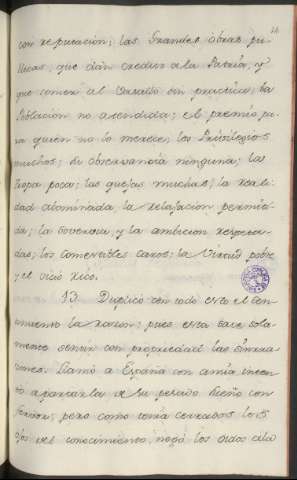 con reputacion; las Grandes obras pu-
blicas, que dàn credito a la Patria, y
que comen al Vasallo sin practica; la
Poblacion no atendida; el premio pa-
ra quien no lo merece; los Privilegios
muchos; la observancia ninguna; la
Tropa poca; las quejas muchas; la real-
dad abominada, la relajacion permiti-
da; la Sobervia, y la ambicion respetа-
das; los comestibles caros; la Virtud pobre
y el vicio rico.
13. Duplicó con todo esto el sen-
timiento la razon; pues esta sola-
mente sentir con propiedad las sinrra-
zones. Llamó a España con animo
apartarla de su pesado sueño con
pero como tenia cerrados los
ojos del conocimiento, negò los oidos à la